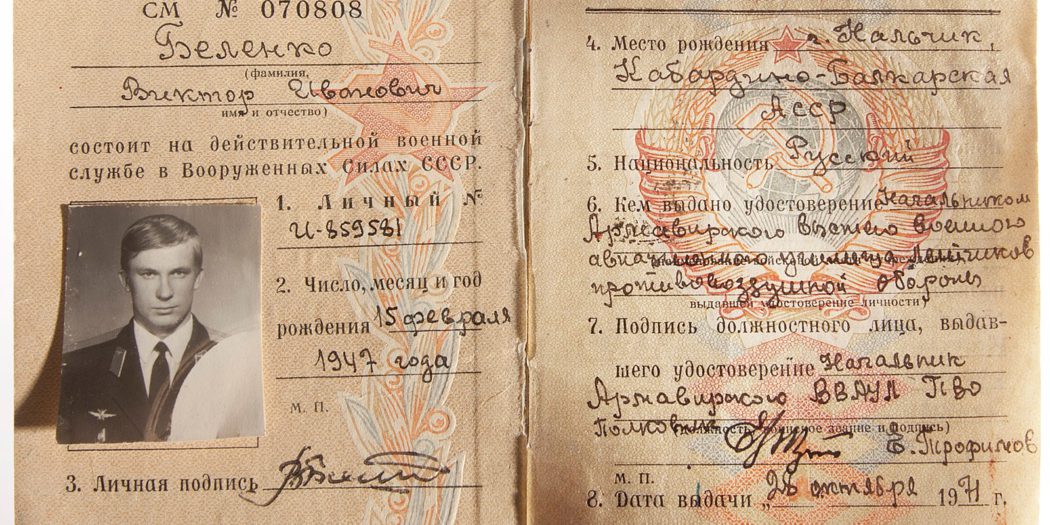 СМ № 070808
Беленко
(фамилия,
Виктор Иванович
имя и отчество)
состоит на действительной военной
службе в Вооруженных Силах СССР.
1. Личный №
И-859581
2. Число, месяц и год
рождения 15 февраля
1947 года
М. П.
3. Личная подпись
4. Место рождения г. Нальчик,
Кабардино-Балкарская
АССР
5. Национальность Русский
6. Кем выдано удостоверение Начальником
Армавирского высшего военного
авиационного училища лётчиков
противовоздушной обороны
выдавшей удостоверение личности)
7. Подпись должностного лица, выдав-
шего удостоверение Начальник
Армавирского ВВАУЛ ПВО
Полковник (должность, воинское звание и подпись)
Е. Трофимов
М. П.
8. Дата выдачи „28 октября 1971 г.